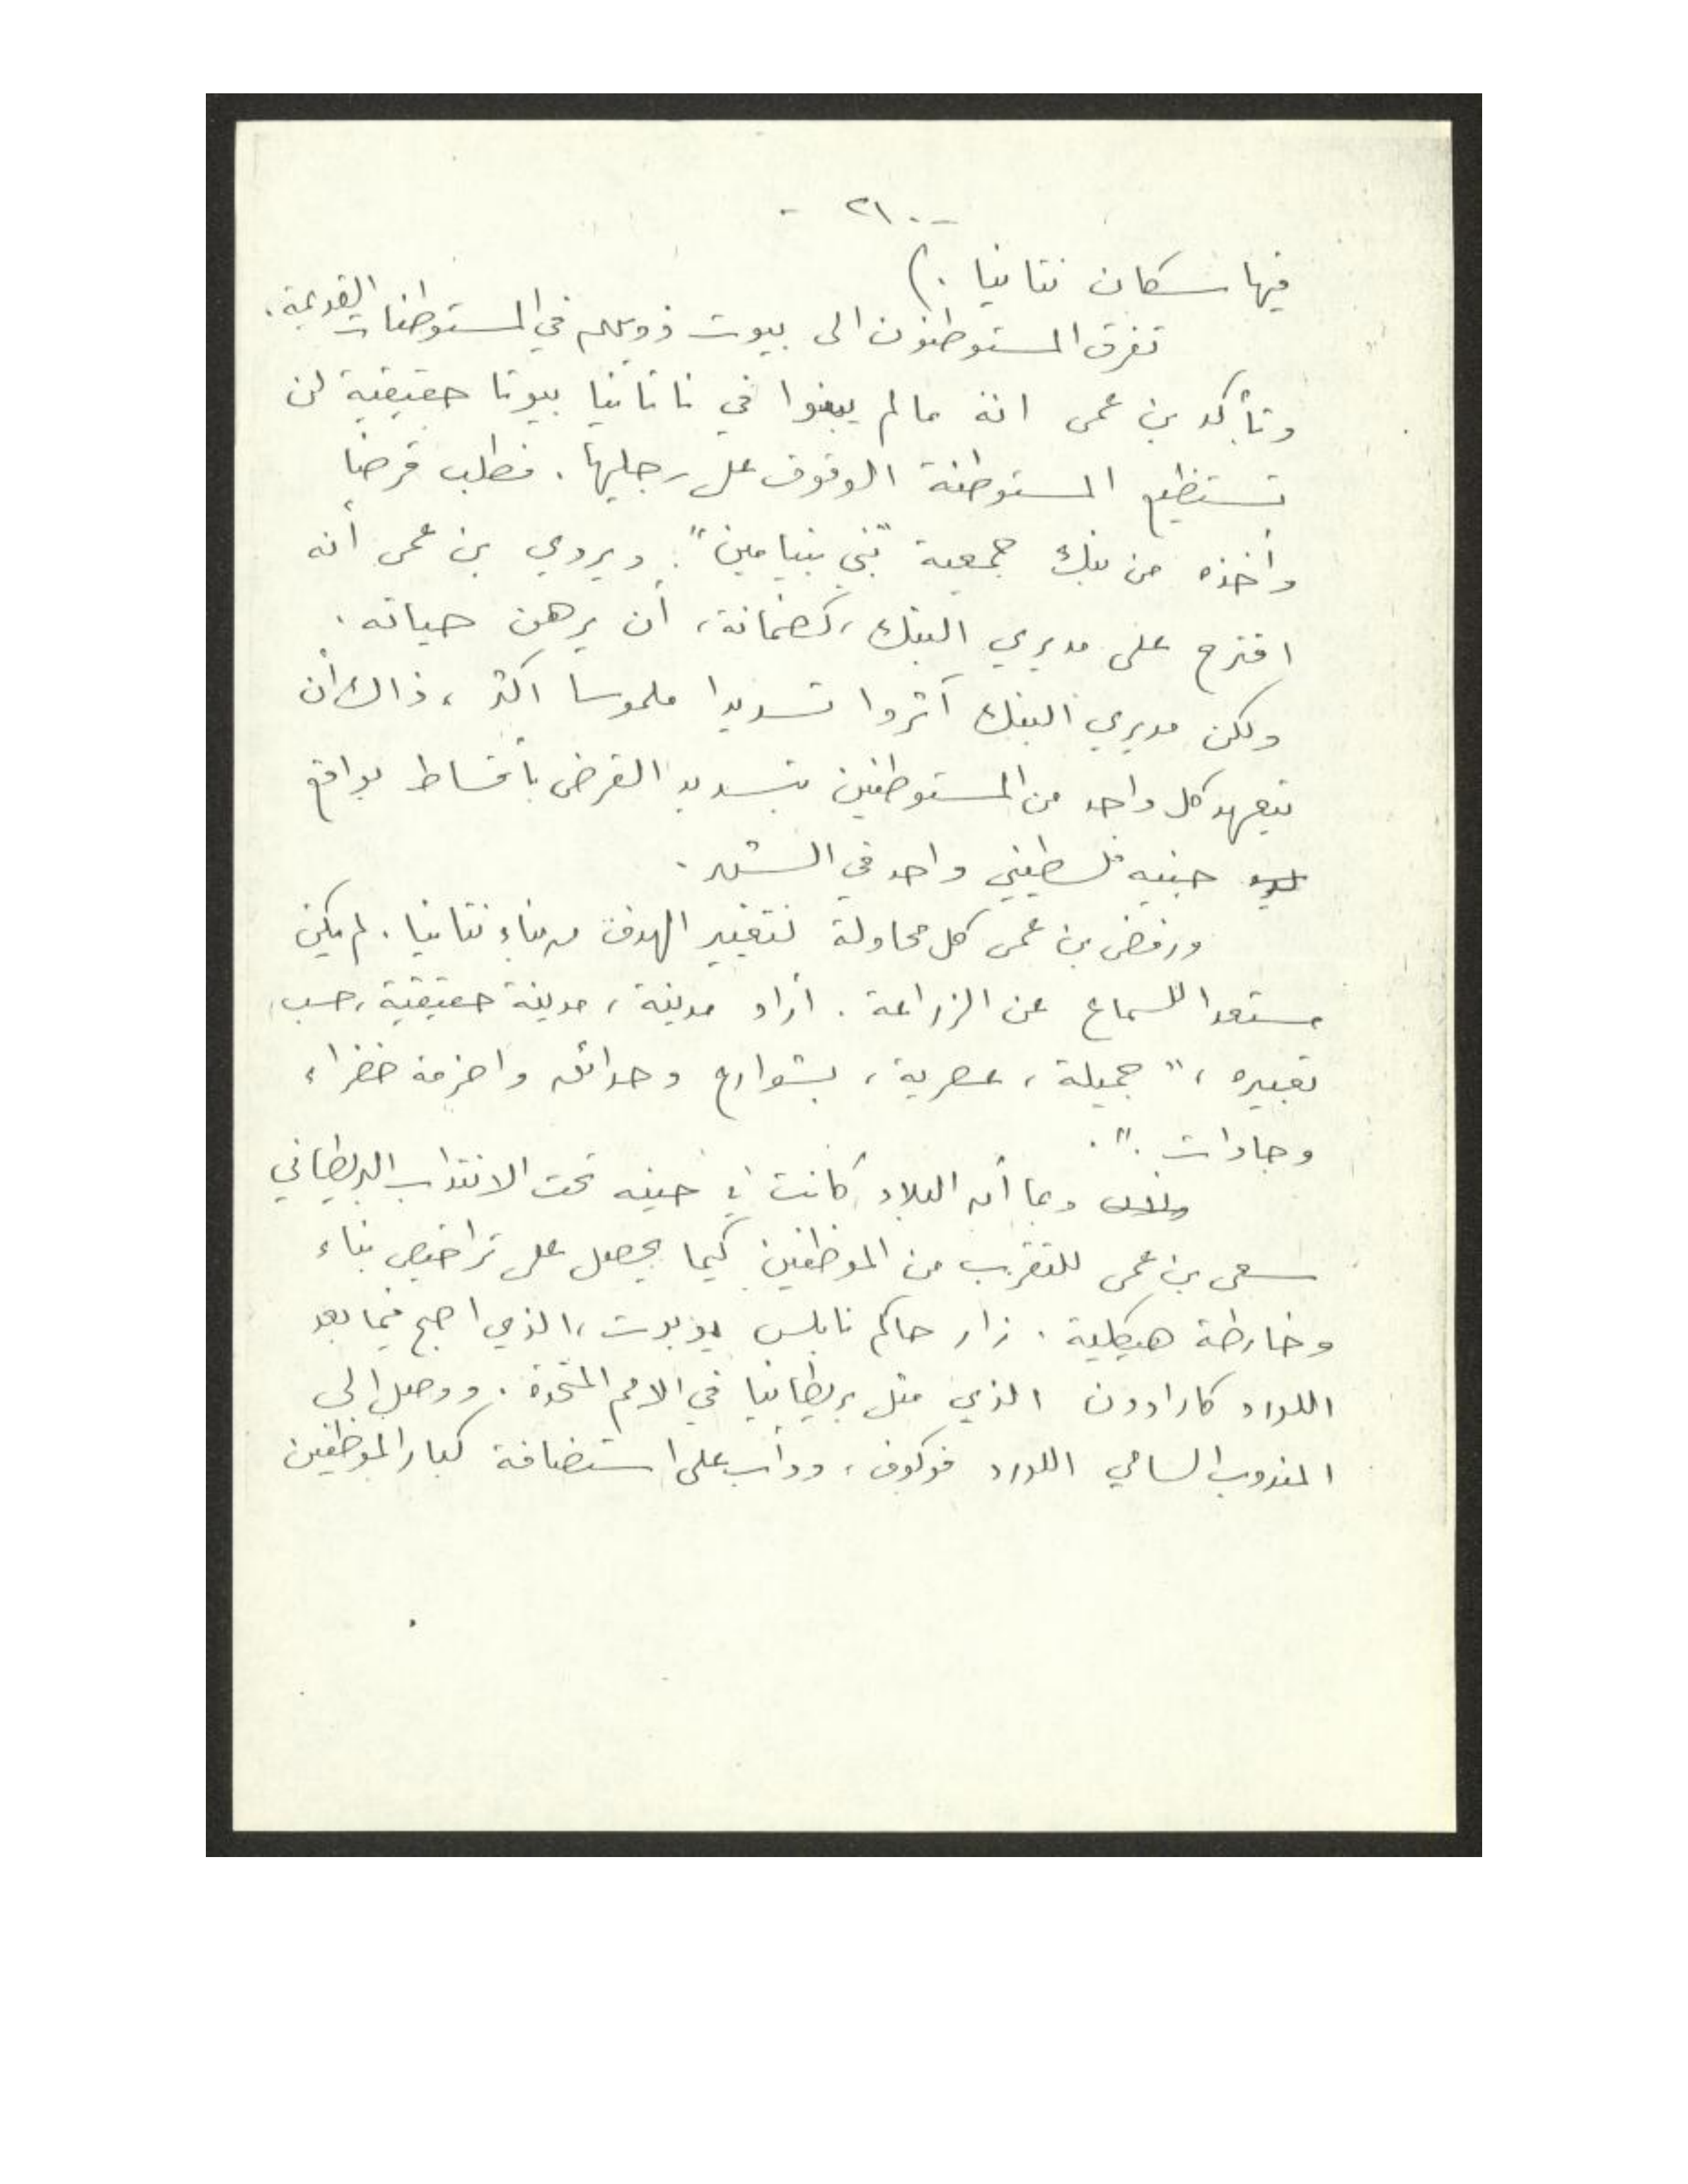 - ٢١٠ -
فيها سكان نتانيا.)
تفرق المستوطنون الى بيوت ذويهم في المستوطنات القديمة.
وتأكد بن عمي انه مالم يبنوا في ناتانيا بيوتا حقيقية لن
تستطيع المستوطنة الوقوف على رجليها. فطلب قرضاً
وأخذه من بنك جمعية "بني بنيامين". ويروي بن عمي أنه
اقترح على مديري البنك، كضمانة، أن يرهن حياته.
ولكن مديري البنك آثروا تسديدا ملموسا اكثر، ذالك أن
يتعهد كل واحد من المستوطنين بتسديد القرض بأقساط بواقع
جنيه فلسطيني واحد في الشهر.
ورفض بن عمي كل محاولة لتغيير الهدف من بناء نتانيا. لم يكن
مستعدا للسماع عن الزراعة. أراد مدينة، مدينة حقيقية، حسب
تعبيره، "جميلة، عصرية، بشوارع وحدائق واحزمة خضراء
وجادات.".
وبما أن البلاد كانت في حينه تحت الانتداب البريطاني
سعى بن عمي للتقرب من الموظفين كيما يحصل على تراخيص بناء
وخارطة هيكلية. زار حاكم نابلس، الذي اصبح فيما بعد
اللورد كارادون الذي مثل بريطانيا في الامم المتحدة. ووصل الى
المندوب السامي اللورد فوكوف، ودأب على استضافة كبار الموظفين